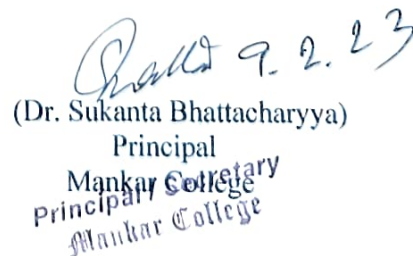 9.2.23
(Dr. Sukanta Bhattacharyya)
Principal
Mankar College
Principal / Secretary
Mankar College